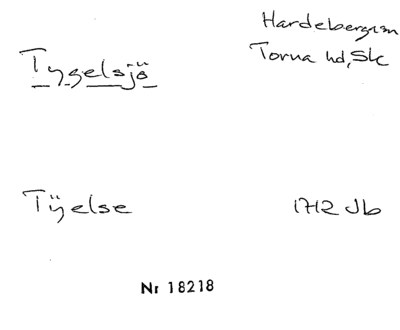 Hardeberga sn
Torna hd, Sk
Tygelsjö
Tÿelse 1712 Jb
Nr 18218